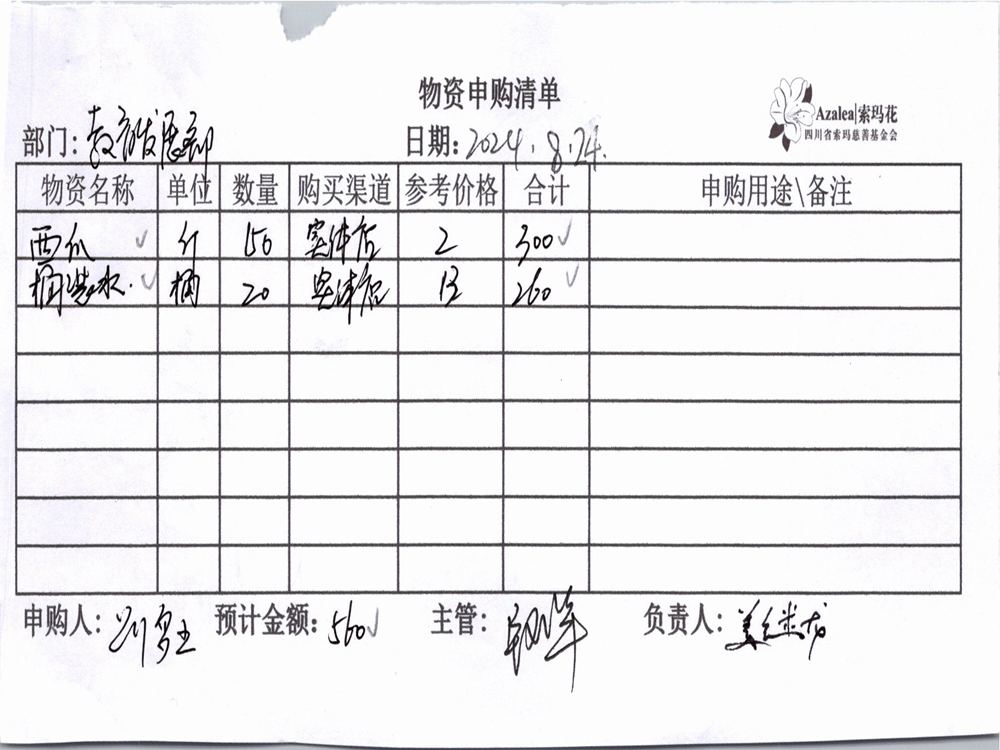 物资申购清单
Azalea|索玛花
四川省索玛慈善基金会
部门：教育发展部 日期：2024.8.24.
物资名称 单位 数量 购买渠道 参考价格 合计 申购用途\备注
西瓜 斤 150 实体店 2 300
桶装水. 桶 20 实体店 13 260
申购人： 预计金额：560 主管： 负责人：